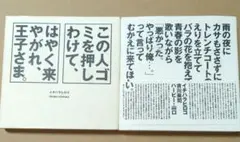 この人ゴ
ミを押し
わけて、
はやく来
やがれ、
王子さま。
雨の夜に
カサもささずに
トレンチコートの
えりを立てて
バラの花を抱えて
青春の影を
歌いながら
「悪かった、
やっぱり俺…。」
って言って
むかえに来てほしい。
イチハラヒロコ